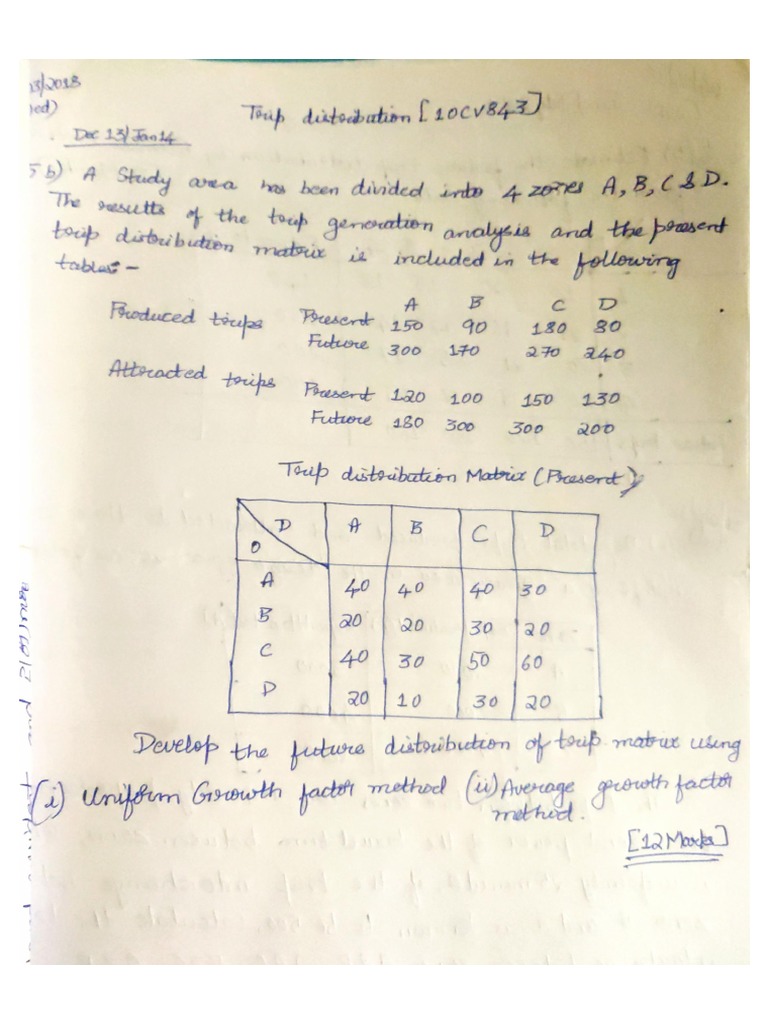 13/2018
Trip distribution [10CV843]
Dec 13/Jan 14
5 b) A Study area has been divided into 4 zones A, B, C & D.
The results of the trip generation analysis and the present
trip distribution matrix is included in the following
tables:-
A B C D
Produced trips Present 150 90 180 80
Future 300 170 270 240
Attracted trips Present 120 100 150 130
Future 180 300 300 200
Trip distribution Matrix (Present)
D A B C D
O
A 40 40 40 30
B 20 20 30 20
C 40 30 50 60
D 20 10 30 20
Develop the future distribution of trip matrix using
(i) Uniform Growth factor method (ii) Average growth factor
method.
[12 Marks]